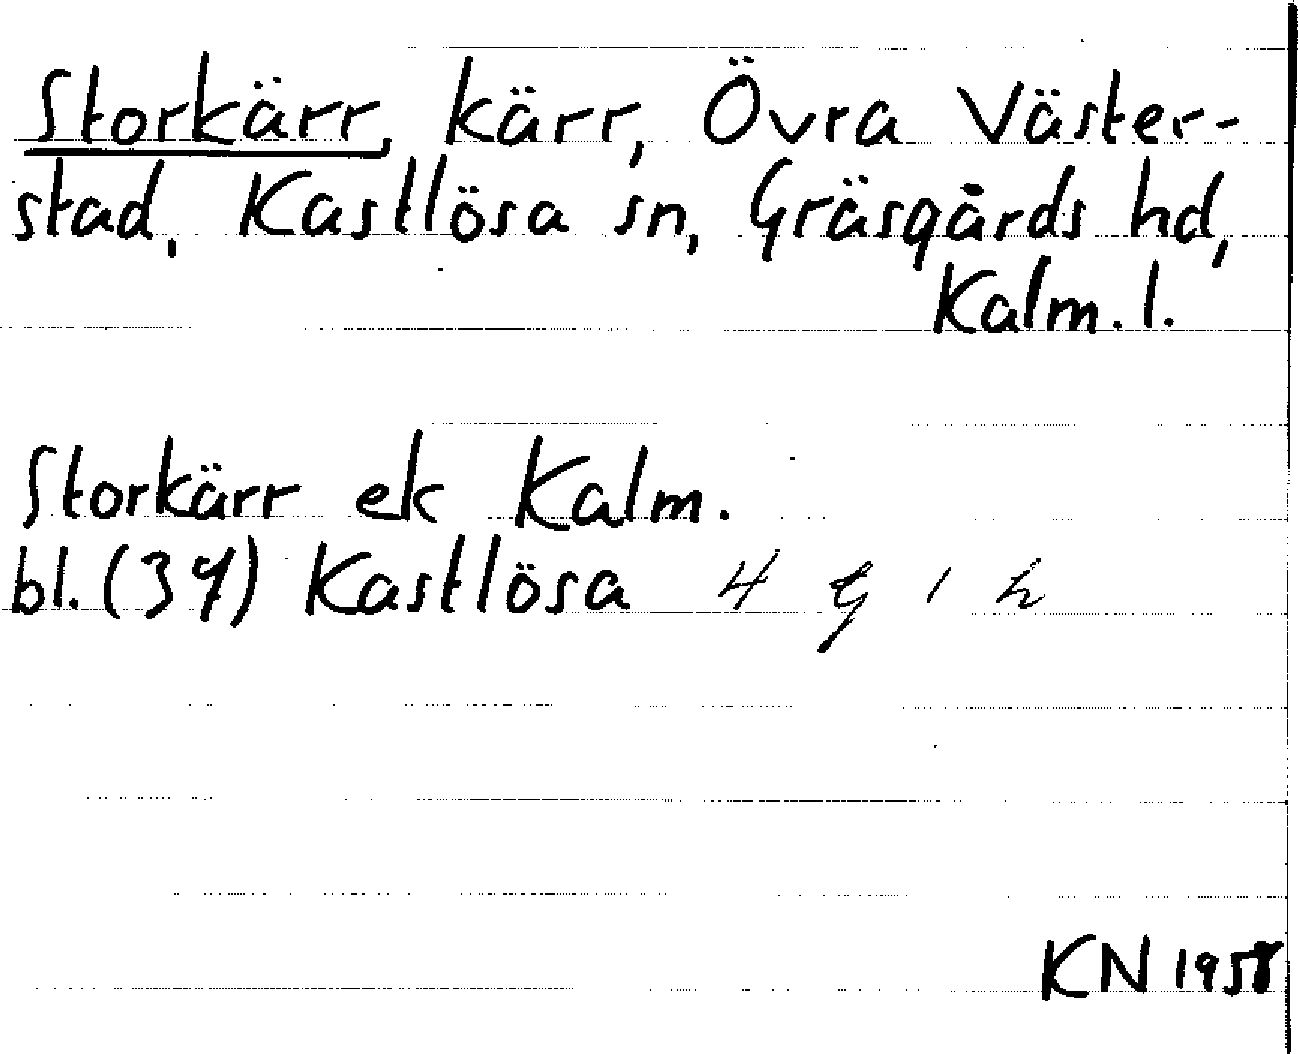 Storkärr, kärr, Övra Väster-
stad, Kastlösa sn, Gräsgårds hd,
Kalm. l.
Storkärr ek Kalm.
bl. (39) Kastlösa 4 G 1 h
KN 1958